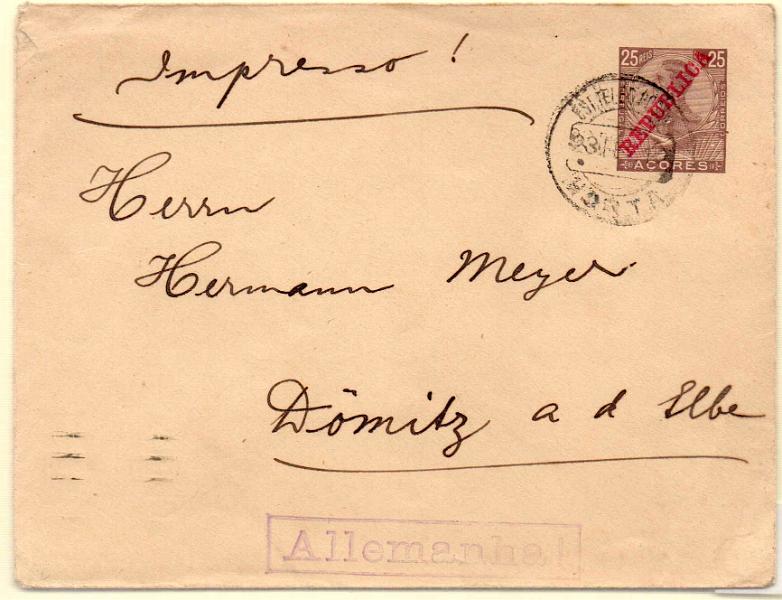 Impresso!
25 REIS 25
REPUBLICA
CORREIOS
AÇORES
HORTA
Herrn
Hermann Meyer
Dömitz a d Elbe
Allemanha!